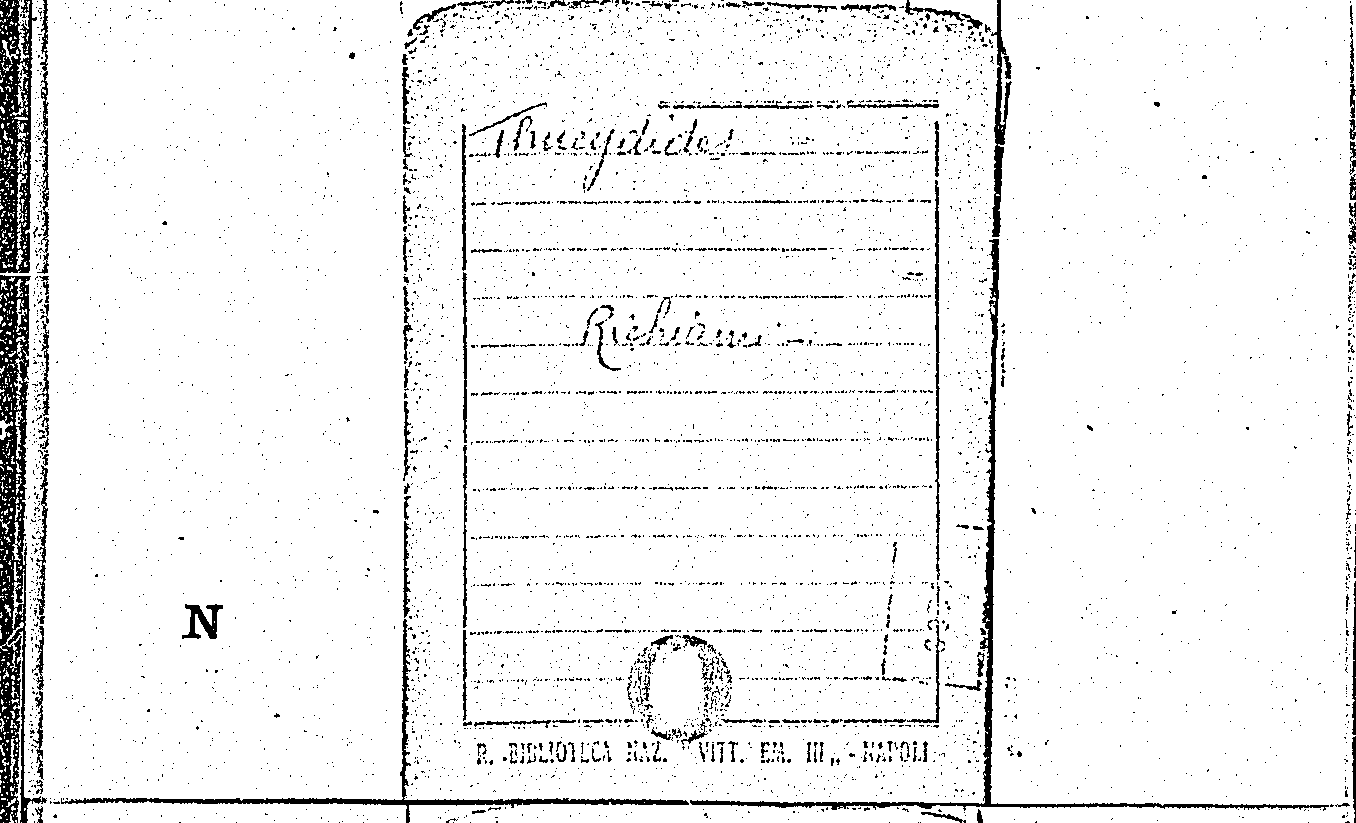 Thucydides
Richiami
N
R. BIBLIOTECA NAZ. "VITT. EM. III„ - NAPOLI